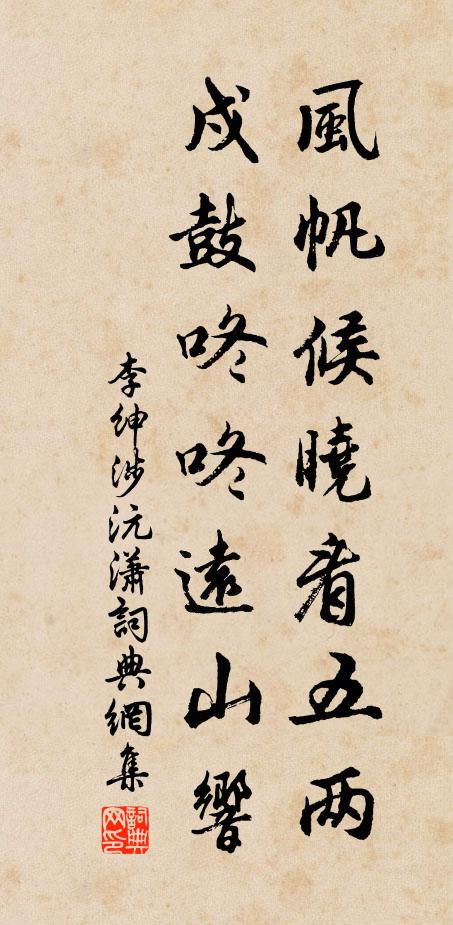 風帆候曉看五兩
戍鼓咚咚遠山響
李紳涉沅瀟詞典網集
詞典网印